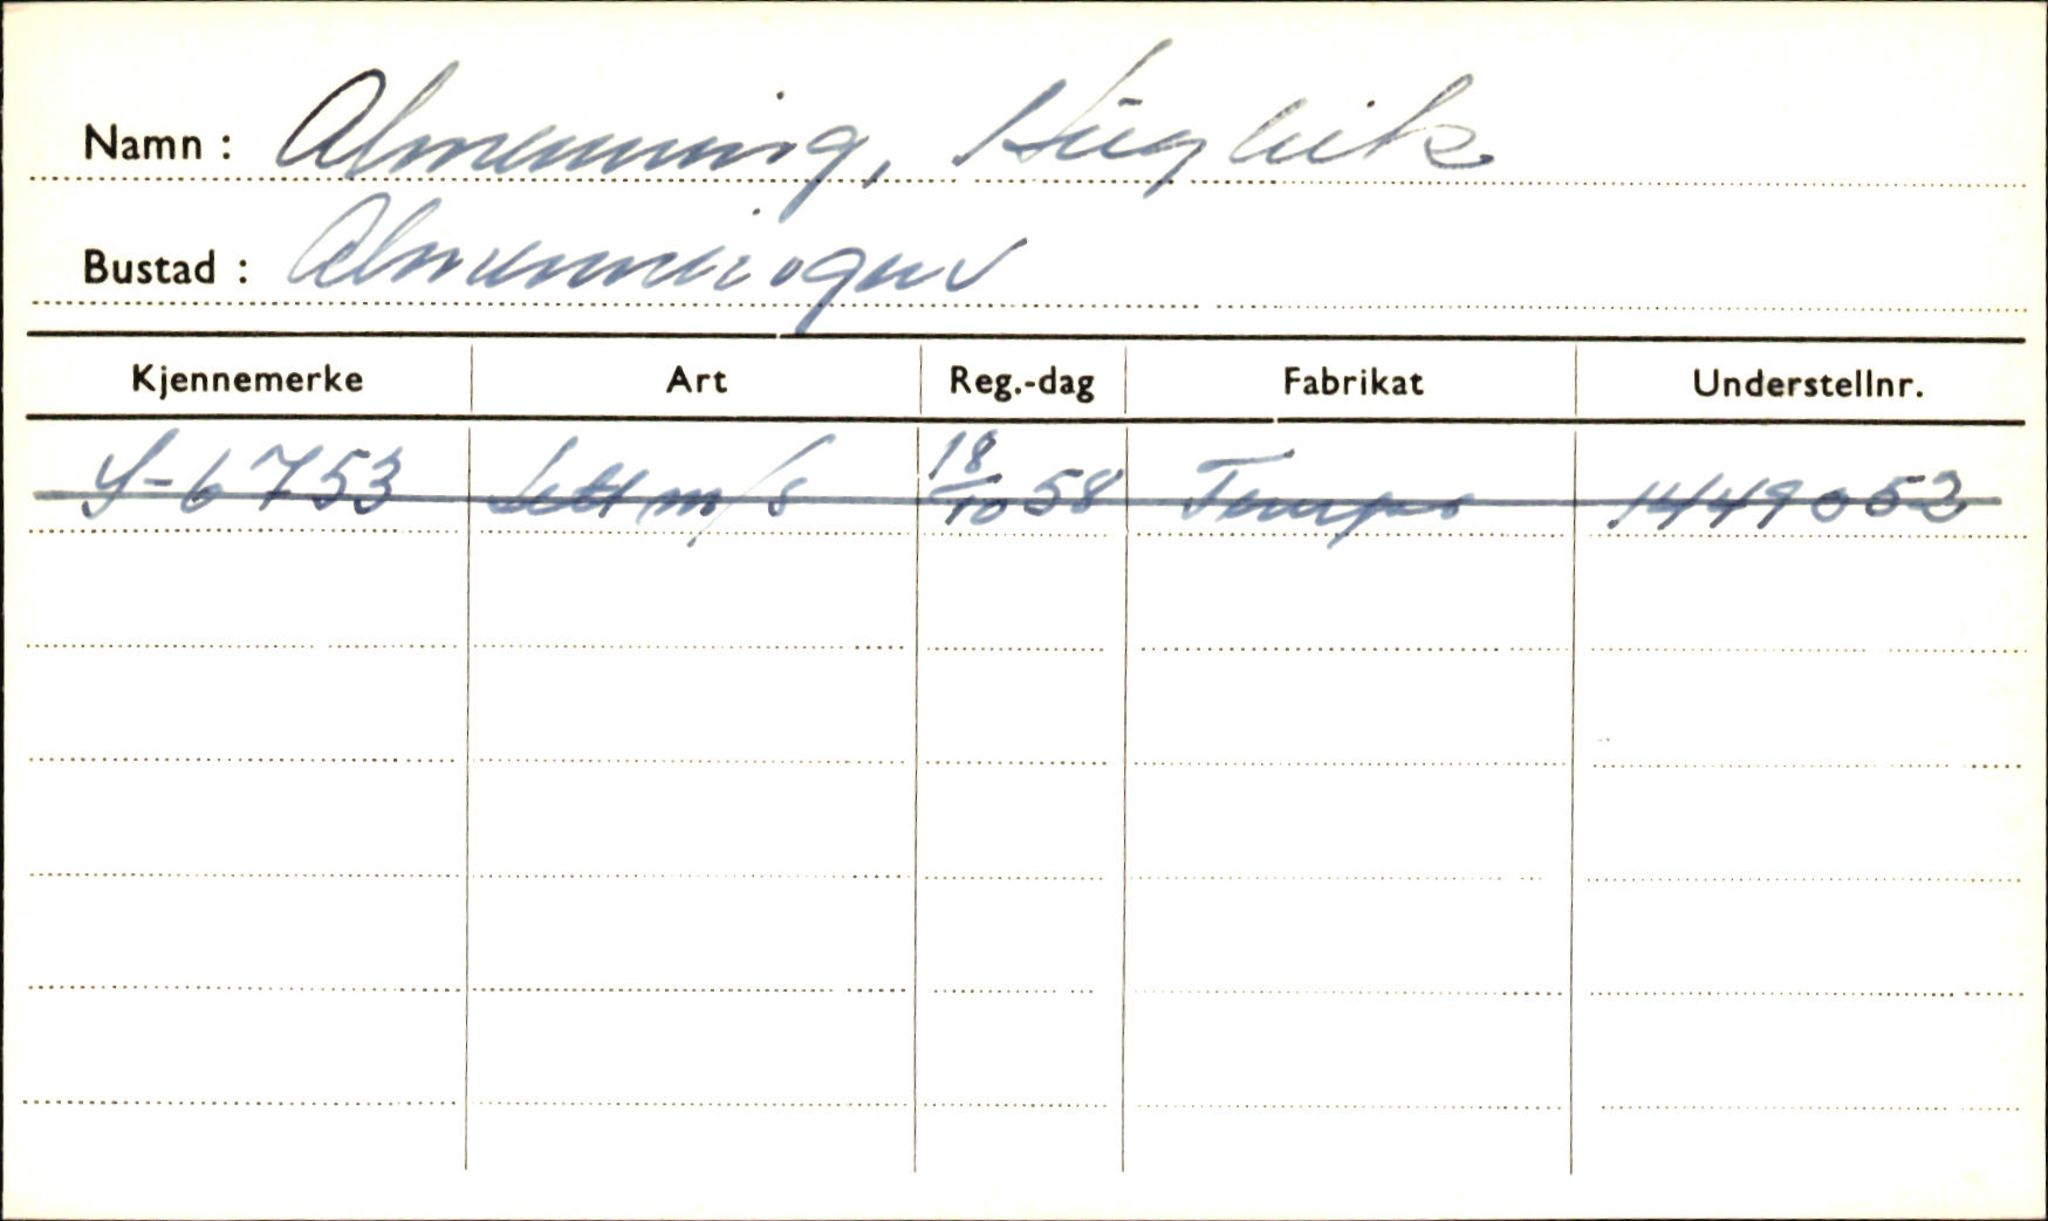 Namn : Almenning, Høgleik
Bustad : Almenningen
Kjennemerke Art Reg.-dag Fabrikat Understellnr.
S-6753 Lett m/s 18/10 58 Tempo 1449052